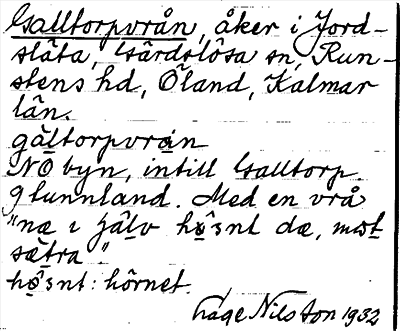 Galltorpvrån, åker i Jord-
släta, Gärdslösa sn, Run-
stens hd, Öland, Kalmar
län.
gåltorpvrån
NÖ byn, intill Galltorp.
9 tunnland. Med en vrå
"næ i jälv hø̂snt dæ, mot
sätra".
hø̂snt: hörnet.
Åge Nilsson 1932